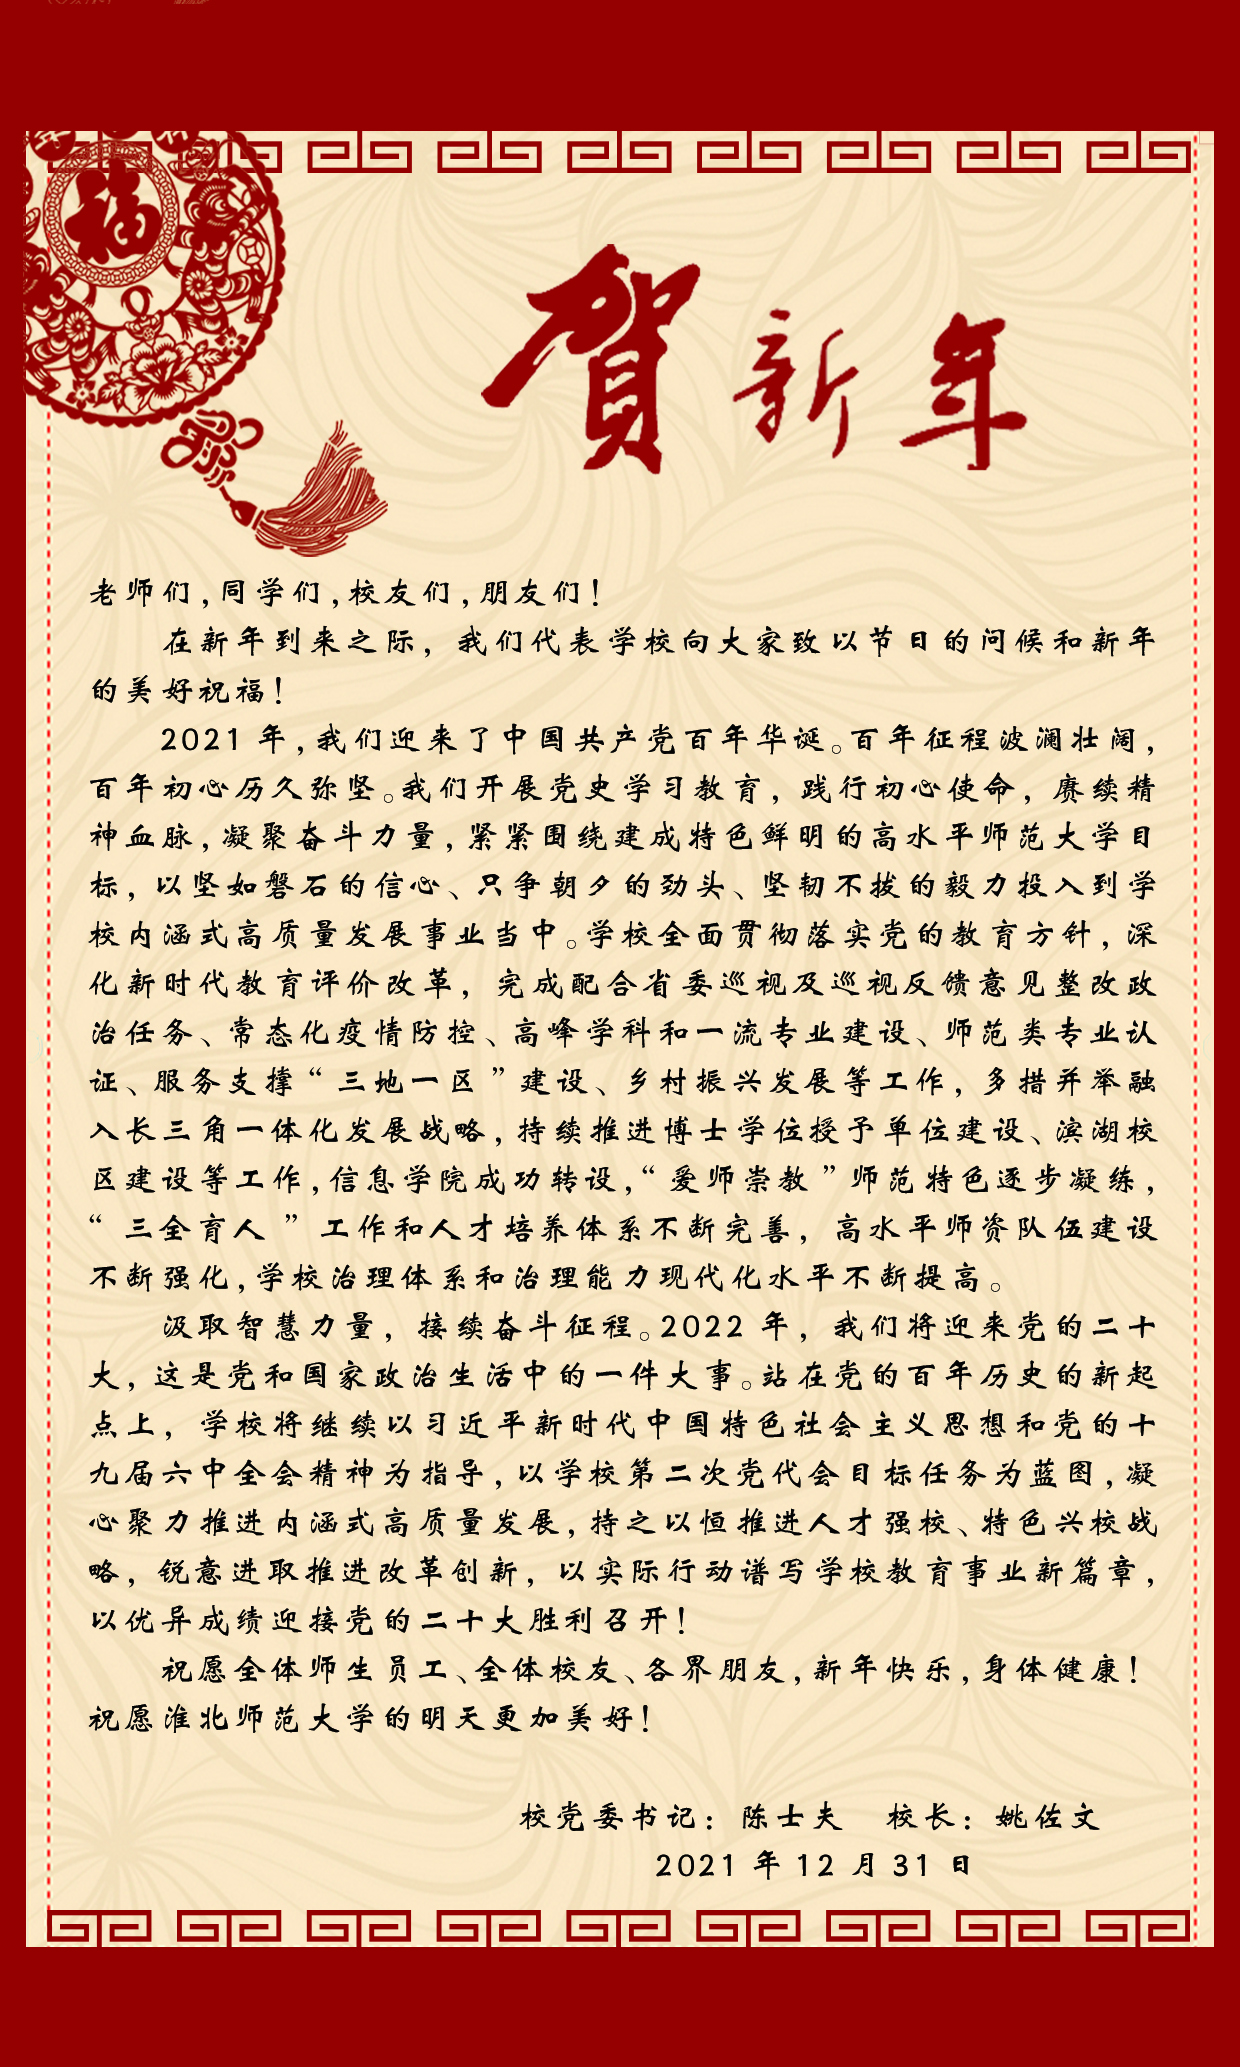 福
贺新年
老师们,同学们,校友们,朋友们!
在新年到来之际，我们代表学校向大家致以节日的问候和新年
的美好祝福!
2021 年,我们迎来了中国共产党百年华诞。百年征程波澜壮阔,
百年初心历久弥坚。我们开展党史学习教育，践行初心使命，赓续精
神血脉,凝聚奋斗力量,紧紧围绕建成特色鲜明的高水平师范大学目
标，以坚如磐石的信心、只争朝夕的劲头、坚韧不拔的毅力投入到学
校内涵式高质量发展事业当中。学校全面贯彻落实党的教育方针，深
化新时代教育评价改革，完成配合省委巡视及巡视反馈意见整改政
治任务、常态化疫情防控、高峰学科和一流专业建设、师范类专业认
证、服务支撑“三地一区”建设、乡村振兴发展等工作，多措并举融
入长三角一体化发展战略,持续推进博士学位授予单位建设、滨湖校
区建设等工作,信息学院成功转设,“爱师崇教”师范特色逐步凝练,
“三全育人”工作和人才培养体系不断完善，高水平师资队伍建设
不断强化,学校治理体系和治理能力现代化水平不断提高。
汲取智慧力量，接续奋斗征程。2022 年，我们将迎来党的二十
大，这是党和国家政治生活中的一件大事。站在党的百年历史的新起
点上，学校将继续以习近平新时代中国特色社会主义思想和党的十
九届六中全会精神为指导,以学校第二次党代会目标任务为蓝图,凝
心聚力推进内涵式高质量发展,持之以恒推进人才强校、特色兴校战
略，锐意进取推进改革创新，以实际行动谱写学校教育事业新篇章,
以优异成绩迎接党的二十大胜利召开!
祝愿全体师生员工、全体校友、各界朋友,新年快乐,身体健康!
祝愿淮北师范大学的明天更加美好!
校党委书记：陈士夫 校长：姚佐文
2021 年 12 月 31 日